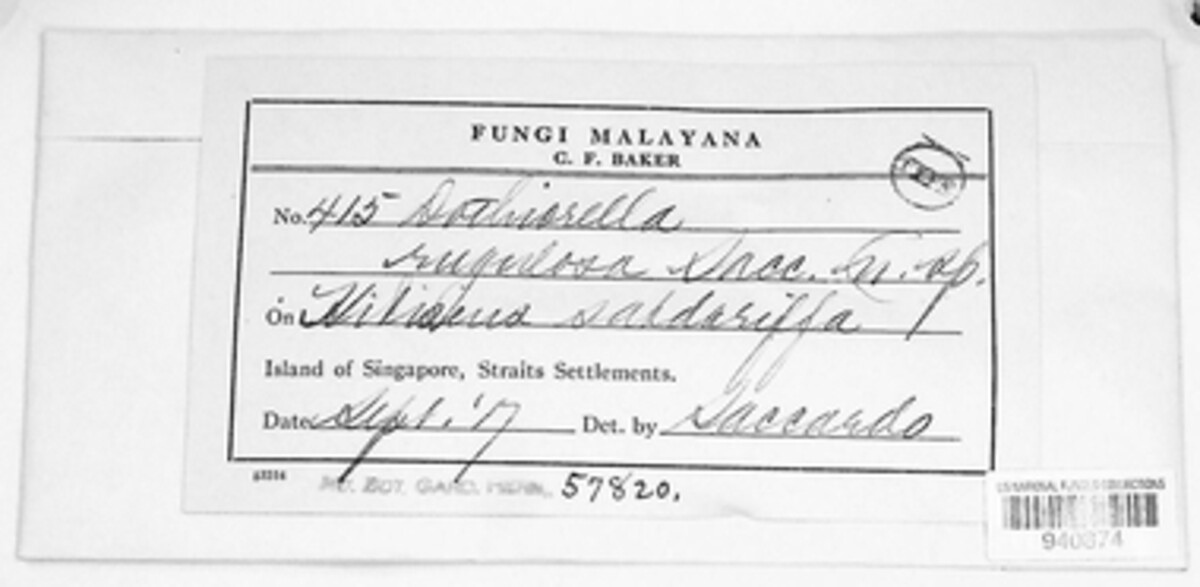 FUNGI MALAYANA
C. F. BAKER
No. 415 Dothiorella
rugulosa Sacc. n. sp.
On Hibiscus sabdariffa
Island of Singapore, Straits Settlements.
Date Sept. '17 Det. by Saccardo
MO. BOT. GARD. HERB. 57820.
940874